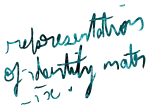 representation
of identity matr
-ix.